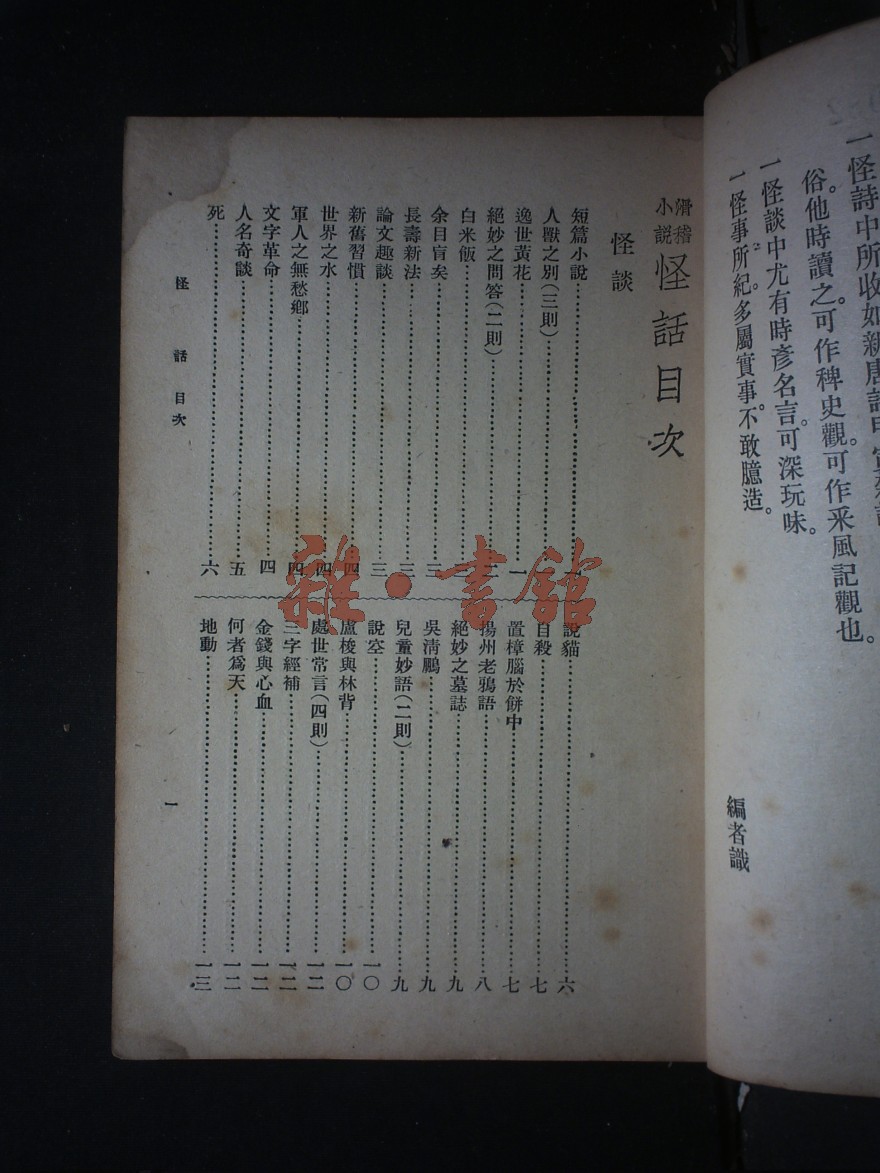 一怪詩中所收如新唐詩
俗。他時讀之。可作稗史觀。可作采風記觀也。
一怪談中尤有時彥名言。可深玩味。
一怪事所紀。多屬實事。不敢臆造。
編者識
滑稽小說 怪話目次
怪談
短篇小說
人獸之別(三則)
逸世黃花……一
絕妙之問答(二則)
白米飯
余目盲矣……三
長壽新法……三
論文趣談……三
新舊習慣……四
世界之水……四
軍人之無愁鄉……四
文字革命……四
人名奇談……五
死……六
說貓……六
自殺……七
置樟腦於餅中……七
揚州老鴉語……八
絕妙之墓誌……九
吳淸鵬……九
兒童妙語(二則)……九
說空……一〇
盧梭與林肯……一〇
處世常言(四則)……一二
三字經補……一二
金錢與心血……一二
何者爲天……一二
地動……一三
怪話目次
一
雜·書館